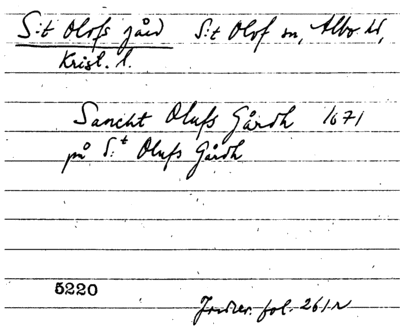 S:t Olofs gård S:t Olof sn, Albo hd,
Krist. l.
Sancht Olufs Gårdh 1671
på S:t Olufs Gårdh
5220
Jordrev. fol. 261